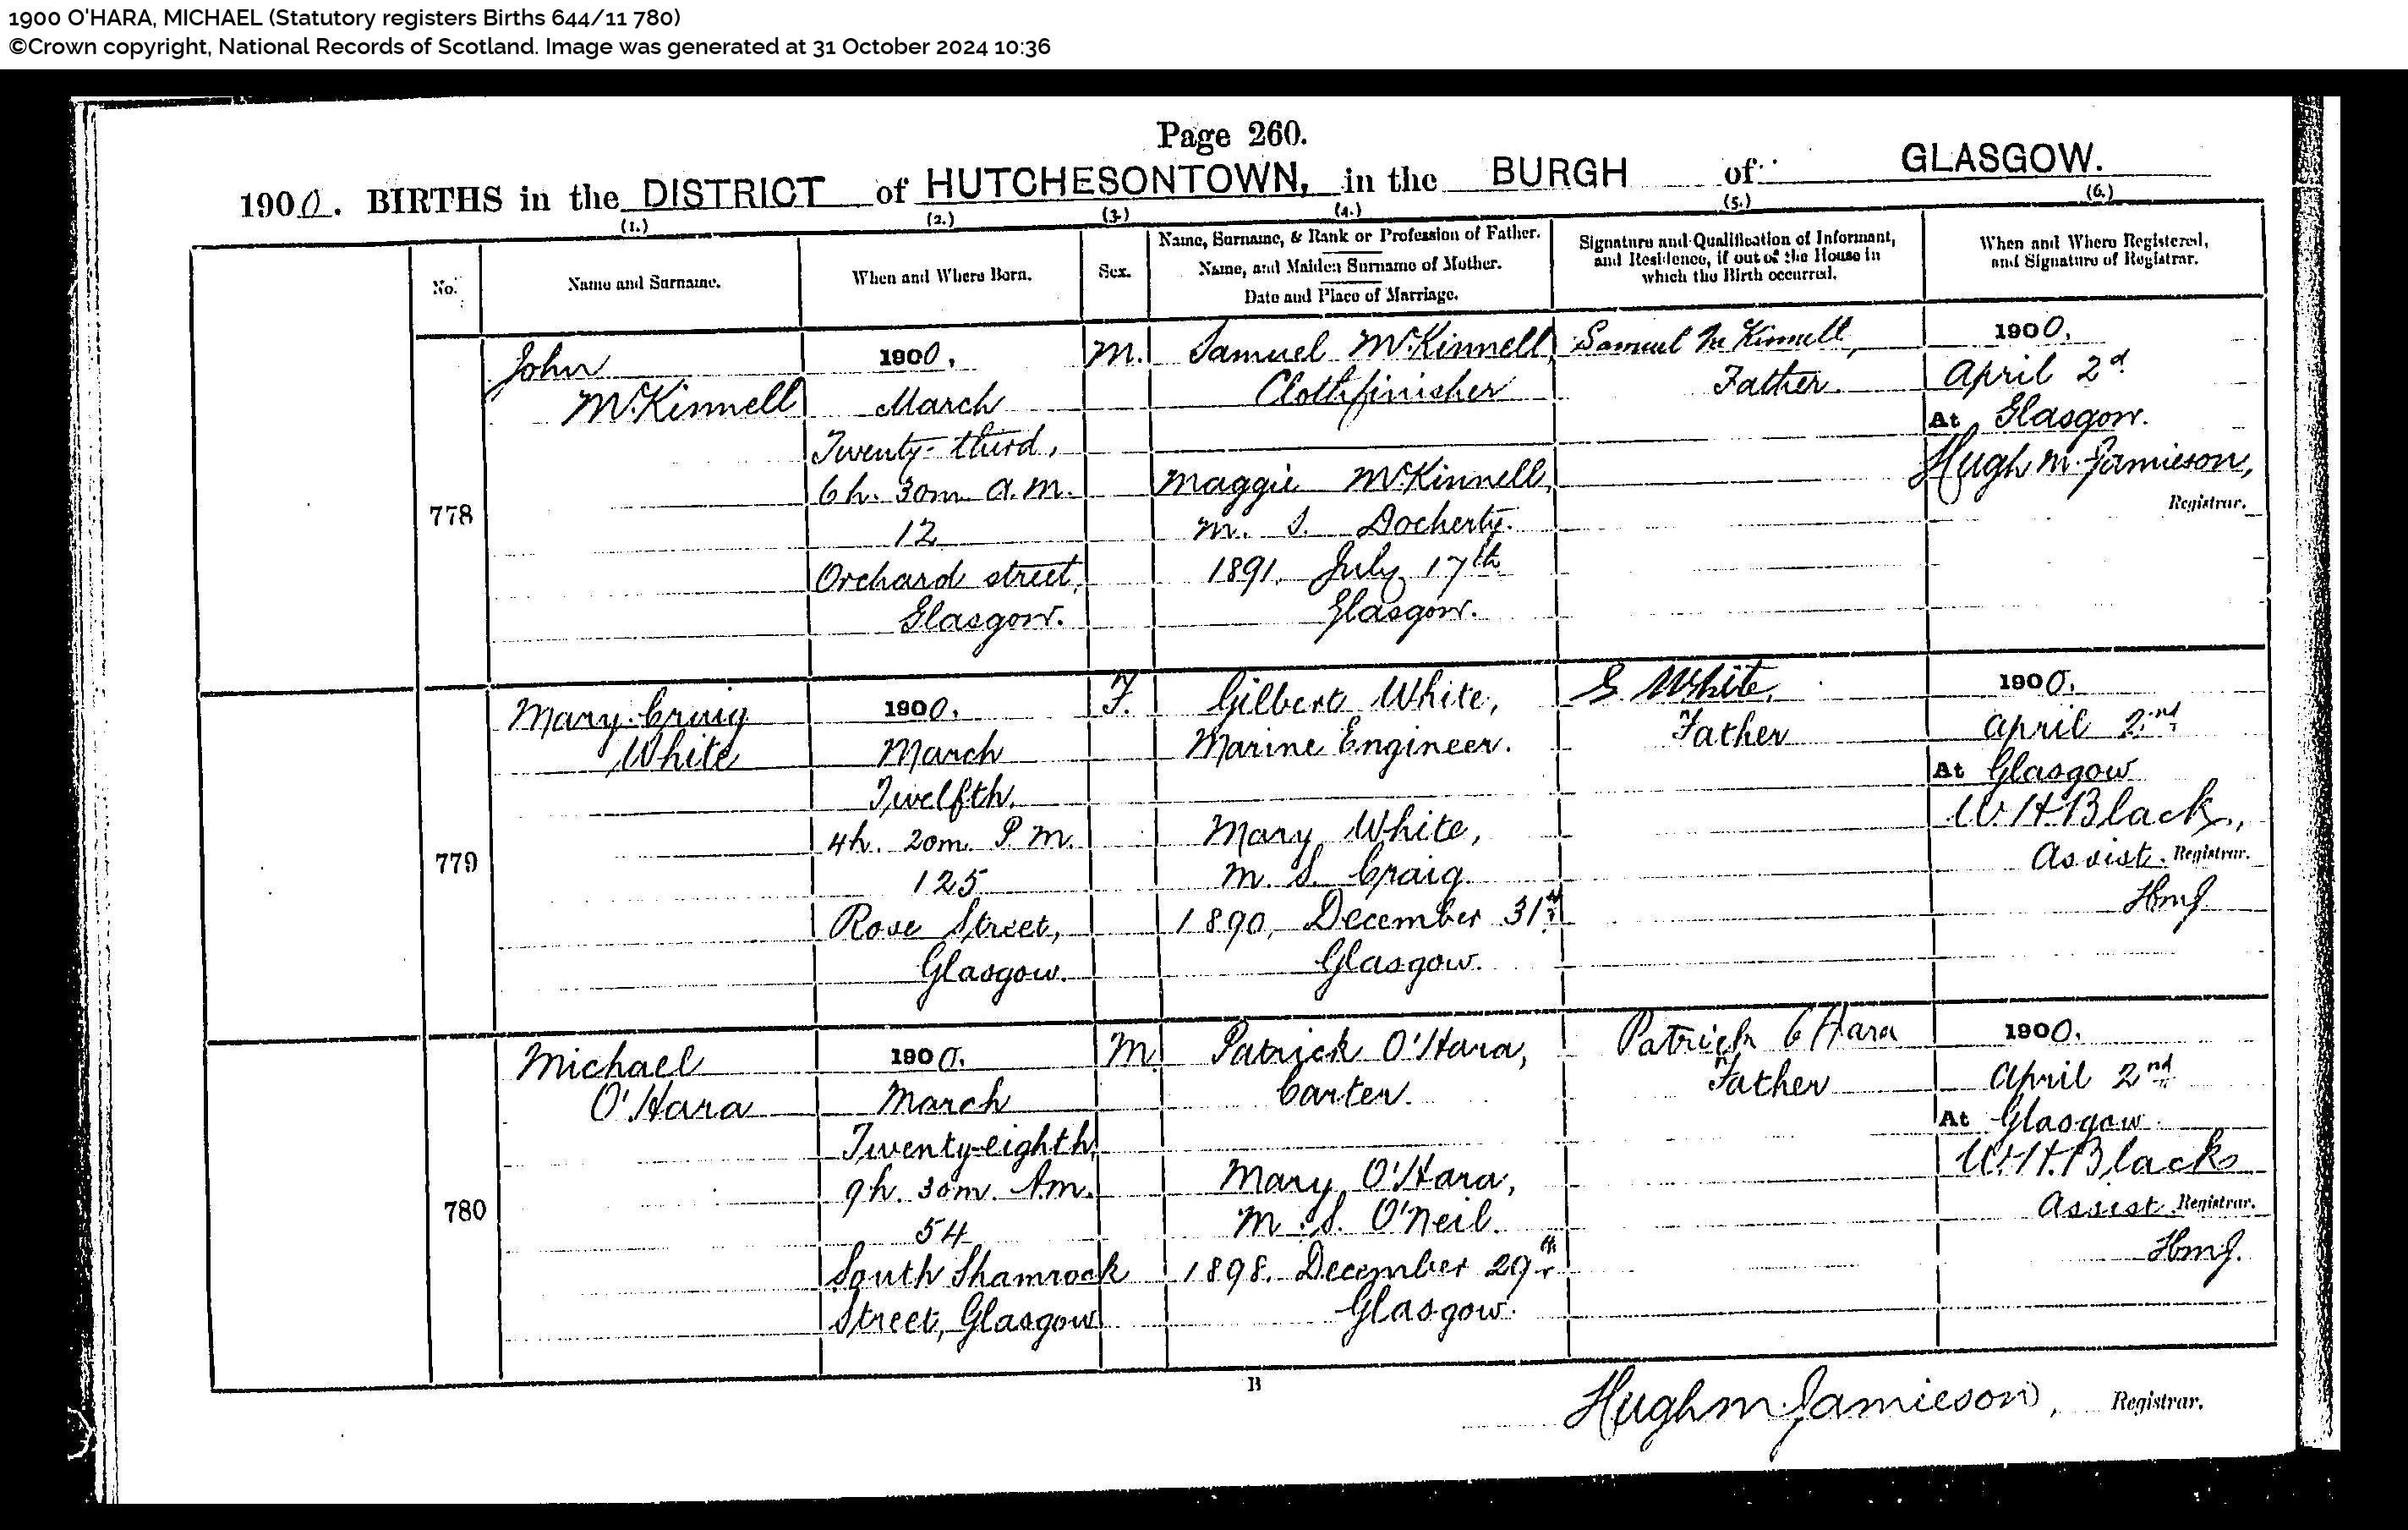 1900 O'HARA, MICHAEL (Statutory registers Births 644/11 780)
©Crown copyright, National Records of Scotland. Image was generated at 31 October 2024 10:36
Page 260.
1900. BIRTHS in the DISTRICT of HUTCHESONTOWN, in the BURGH of GLASGOW.
(1.) (2.) (3.) (4.) (5.) (6.)
No.
Name and Surname.
When and Where Born.
Sex.
Name, Surname, & Rank or Profession of Father.
Name, and Maiden Surname of Mother.
Date and Place of Marriage.
Signature and Qualification of Informant,
and Residence, if out of the House in
which the Birth occurred.
When and Where Registered,
and Signature of Registrar.
778
John
McKinnell
1900,
March
Twenty-third,
6h. 30m A.M.
12
Orchard street,
Glasgow.
M.
Samuel McKinnell,
Clothfinisher
Maggie McKinnell,
M. S. Docherty.
1891, July 17th
Glasgow.
Samuel McKinnell,
Father.
1900,
April 2d
At Glasgow.
Hugh M. Jamieson,
Registrar.
779
Mary Craig
White
1900,
March
Twelfth,
4h. 20m. P.M.
125
Rose Street,
Glasgow.
F.
Gilbert White,
Marine Engineer.
Mary White,
M. S. Craig
1890, December 31st
Glasgow.
G. White,
Father
1900,
April 2nd
At Glasgow
W. H. Black,
Assist. Registrar.
HMJ
780
Michael
O'Hara
1900,
March
Twenty-eighth,
9h. 30m. A.M.
54
South Shamrock
Street, Glasgow
M.
Patrick O'Hara,
Carter.
Mary O'Hara,
M. S. O'Neil.
1898. December 29th
Glasgow.
Patrick O Hara
Father
1900.
April 2nd
At Glasgow
W. H. Black
Assist Registrar.
HMJ.
B
Hugh M. Jamieson, Registrar.